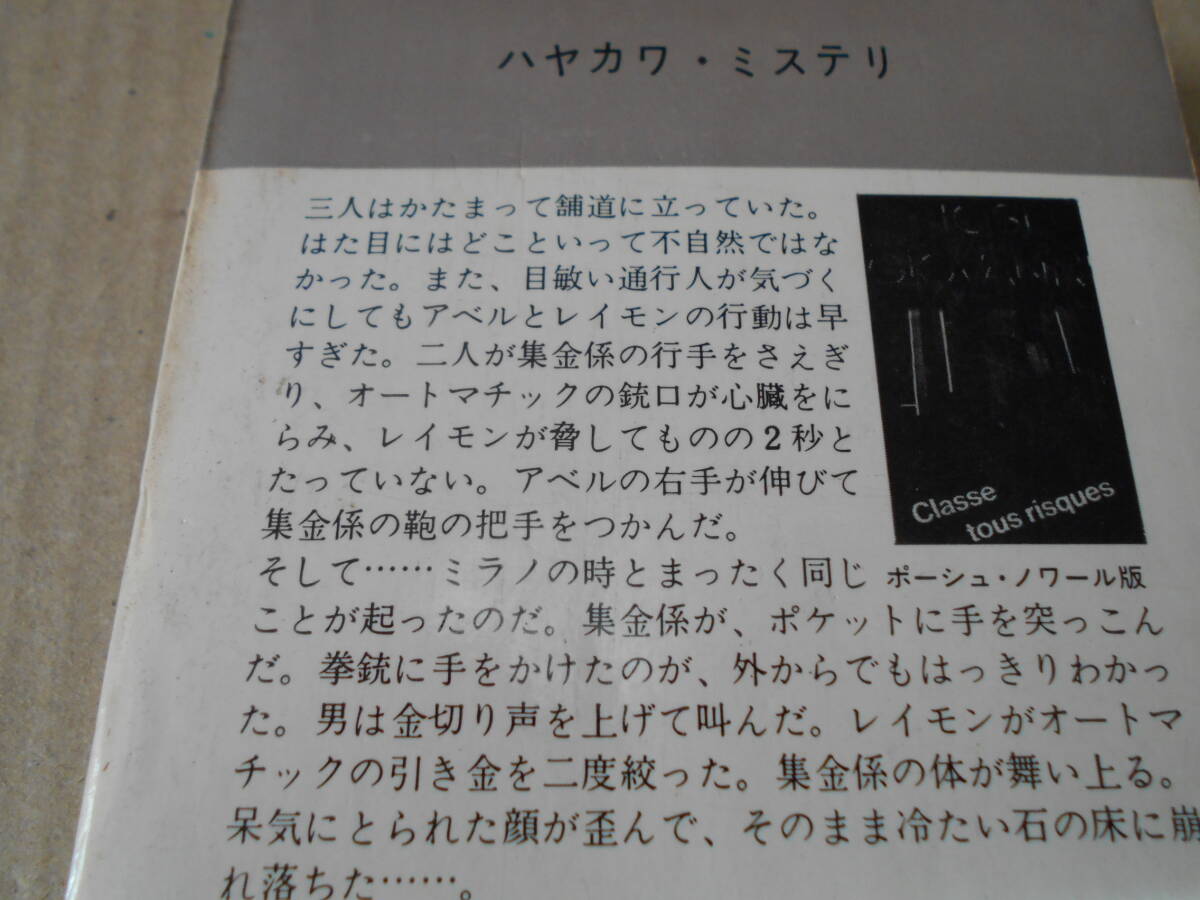 ハヤカワ・ミステリ
三人はかたまって舗道に立っていた。
はた目にはどこといって不自然ではな
かった。また、目敏い通行人が気づく
にしてもアベルとレイモンの行動は早
すぎた。二人が集金係の行手をさえぎ
り、オートマチックの銃口が心臓をに
らみ、レイモンが脅してものの2秒と
たっていない。アベルの右手が伸びて
集金係の鞄の把手をつかんだ。
そして……ミラノの時とまったく同じ
ことが起ったのだ。集金係が、ポケットに手を突っこん
だ。拳銃に手をかけたのが、外からでもはっきりわかっ
た。男は金切り声を上げて叫んだ。レイモンがオートマ
チックの引き金を二度絞った。集金係の体が舞い上る。
呆気にとられた顔が歪んで、そのまま冷たい石の床に崩
れ落ちた……。
Classe
tous risques
ポーシュ・ノワール版